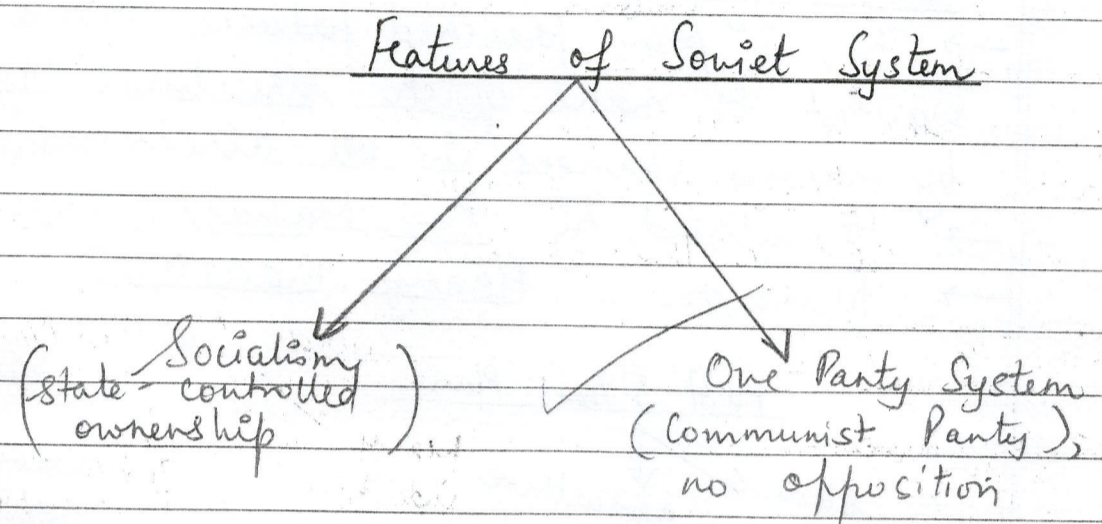 Features of Soviet System
Socialism
(state-controlled
ownership)
One Party System
(Communist Party),
no opposition